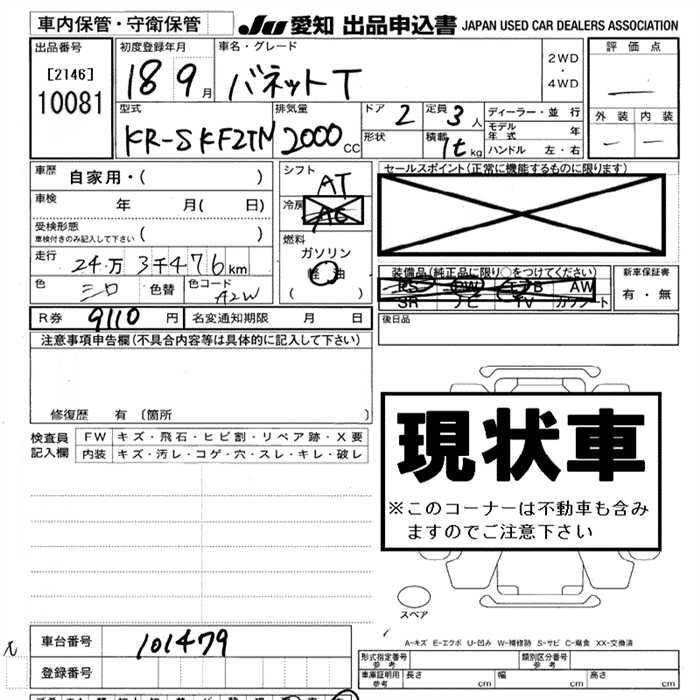 車内保管・守衛保管 JU 愛知 出品申込書 JAPAN USED CAR DEALERS ASSOCIATION
出品番号 初度登録年月 車名・グレード 評価点
[2146] 18 9月 バネットT 2WD・4WD —
10081
型式 排気量 ドア 2 定員 3人 ディーラー・並行 外装 内装
KR-SKF2TN 2000cc 形状 積載 1t kg モデル年式 年 — —
ハンドル 左・右
車歴 自家用・( ) シフト AT セールスポイント(正常に機能するものに限ります)
車検 年 月( 日) 冷房 AC
受検形態 車検付きのみ記入して下さい ( ) 燃料
ガソリン
走行 24万3千476km 軽油 装備品(純正品に限り○をつけてください) 新車保証書
( ) PS PW エアB AW 有・無
色 シロ 色替 色コード A2W SR ナビ TV カワシート
R券 9110円 名変通知期限 月 日 後日品
注意事項申告欄(不具合内容等は具体的に記入して下さい)
修復歴 有 (箇所 )
現状車
※このコーナーは不動車も含み
ますのでご注意下さい
検査員 FW キズ・飛石・ヒビ割・リペア跡・X要
記入欄 内装 キズ・汚レ・コゲ・穴・スレ・キレ・破レ
スペア
A-キズ E-エクボ U-凹み W-補修跡 S-サビ C-腐食 XX-交換済
車台番号 101479 形式指定番号 参考 類別区分番号 参考
登録番号 車庫証明用 参考 長さ cm 幅 cm 高さ cm